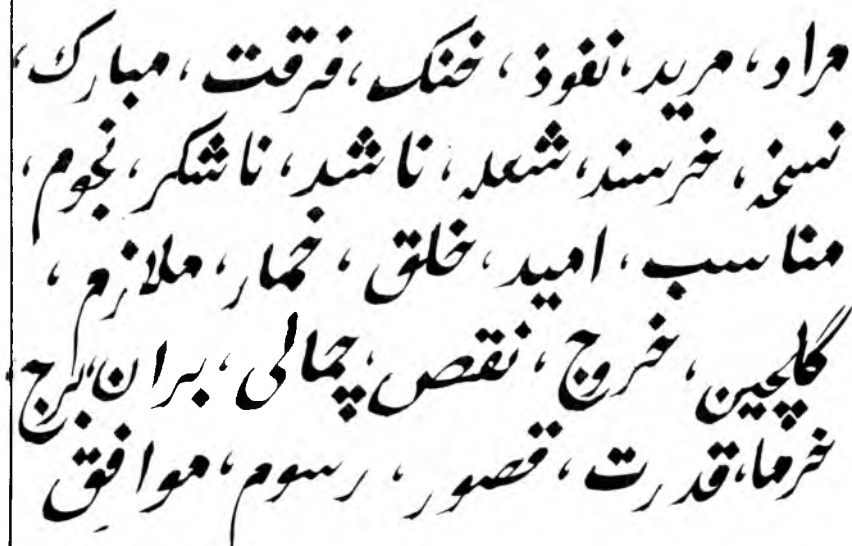 مراد، مرید، نفوذ، خنک، فرقت، مبارک،
نسخہ، خرسند، شعلہ، ناشد، ناشکر، نجوم،
مناسب، امید، خلق، خمار، ملازم،
گلچین، خروج، نقص، چمالی، بران، برج،
خرما، قدرت، قصور، رسوم، موافق